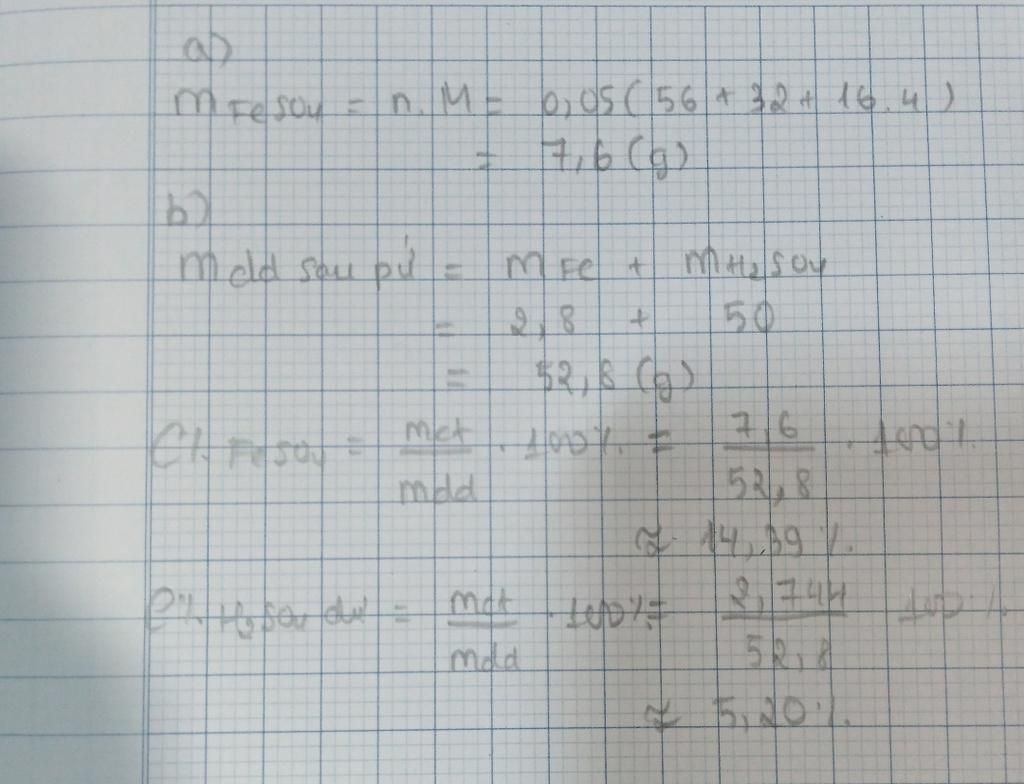 a)
m FeSO4 = n.M = 0,05(56 + 32 + 16.4)
= 7,6 (g)
b)
m dd sau pứ = m Fe + m H2SO4
= 2,8 + 50
= 52,8 (g)
C% FeSO4 = mct/mdd . 100% = 7,6/52,8 . 100%
≈ 14,39%.
C% H2SO4 dư = mct/mdd . 100% = 2,744/52,8 100%
≈ 5,20%.